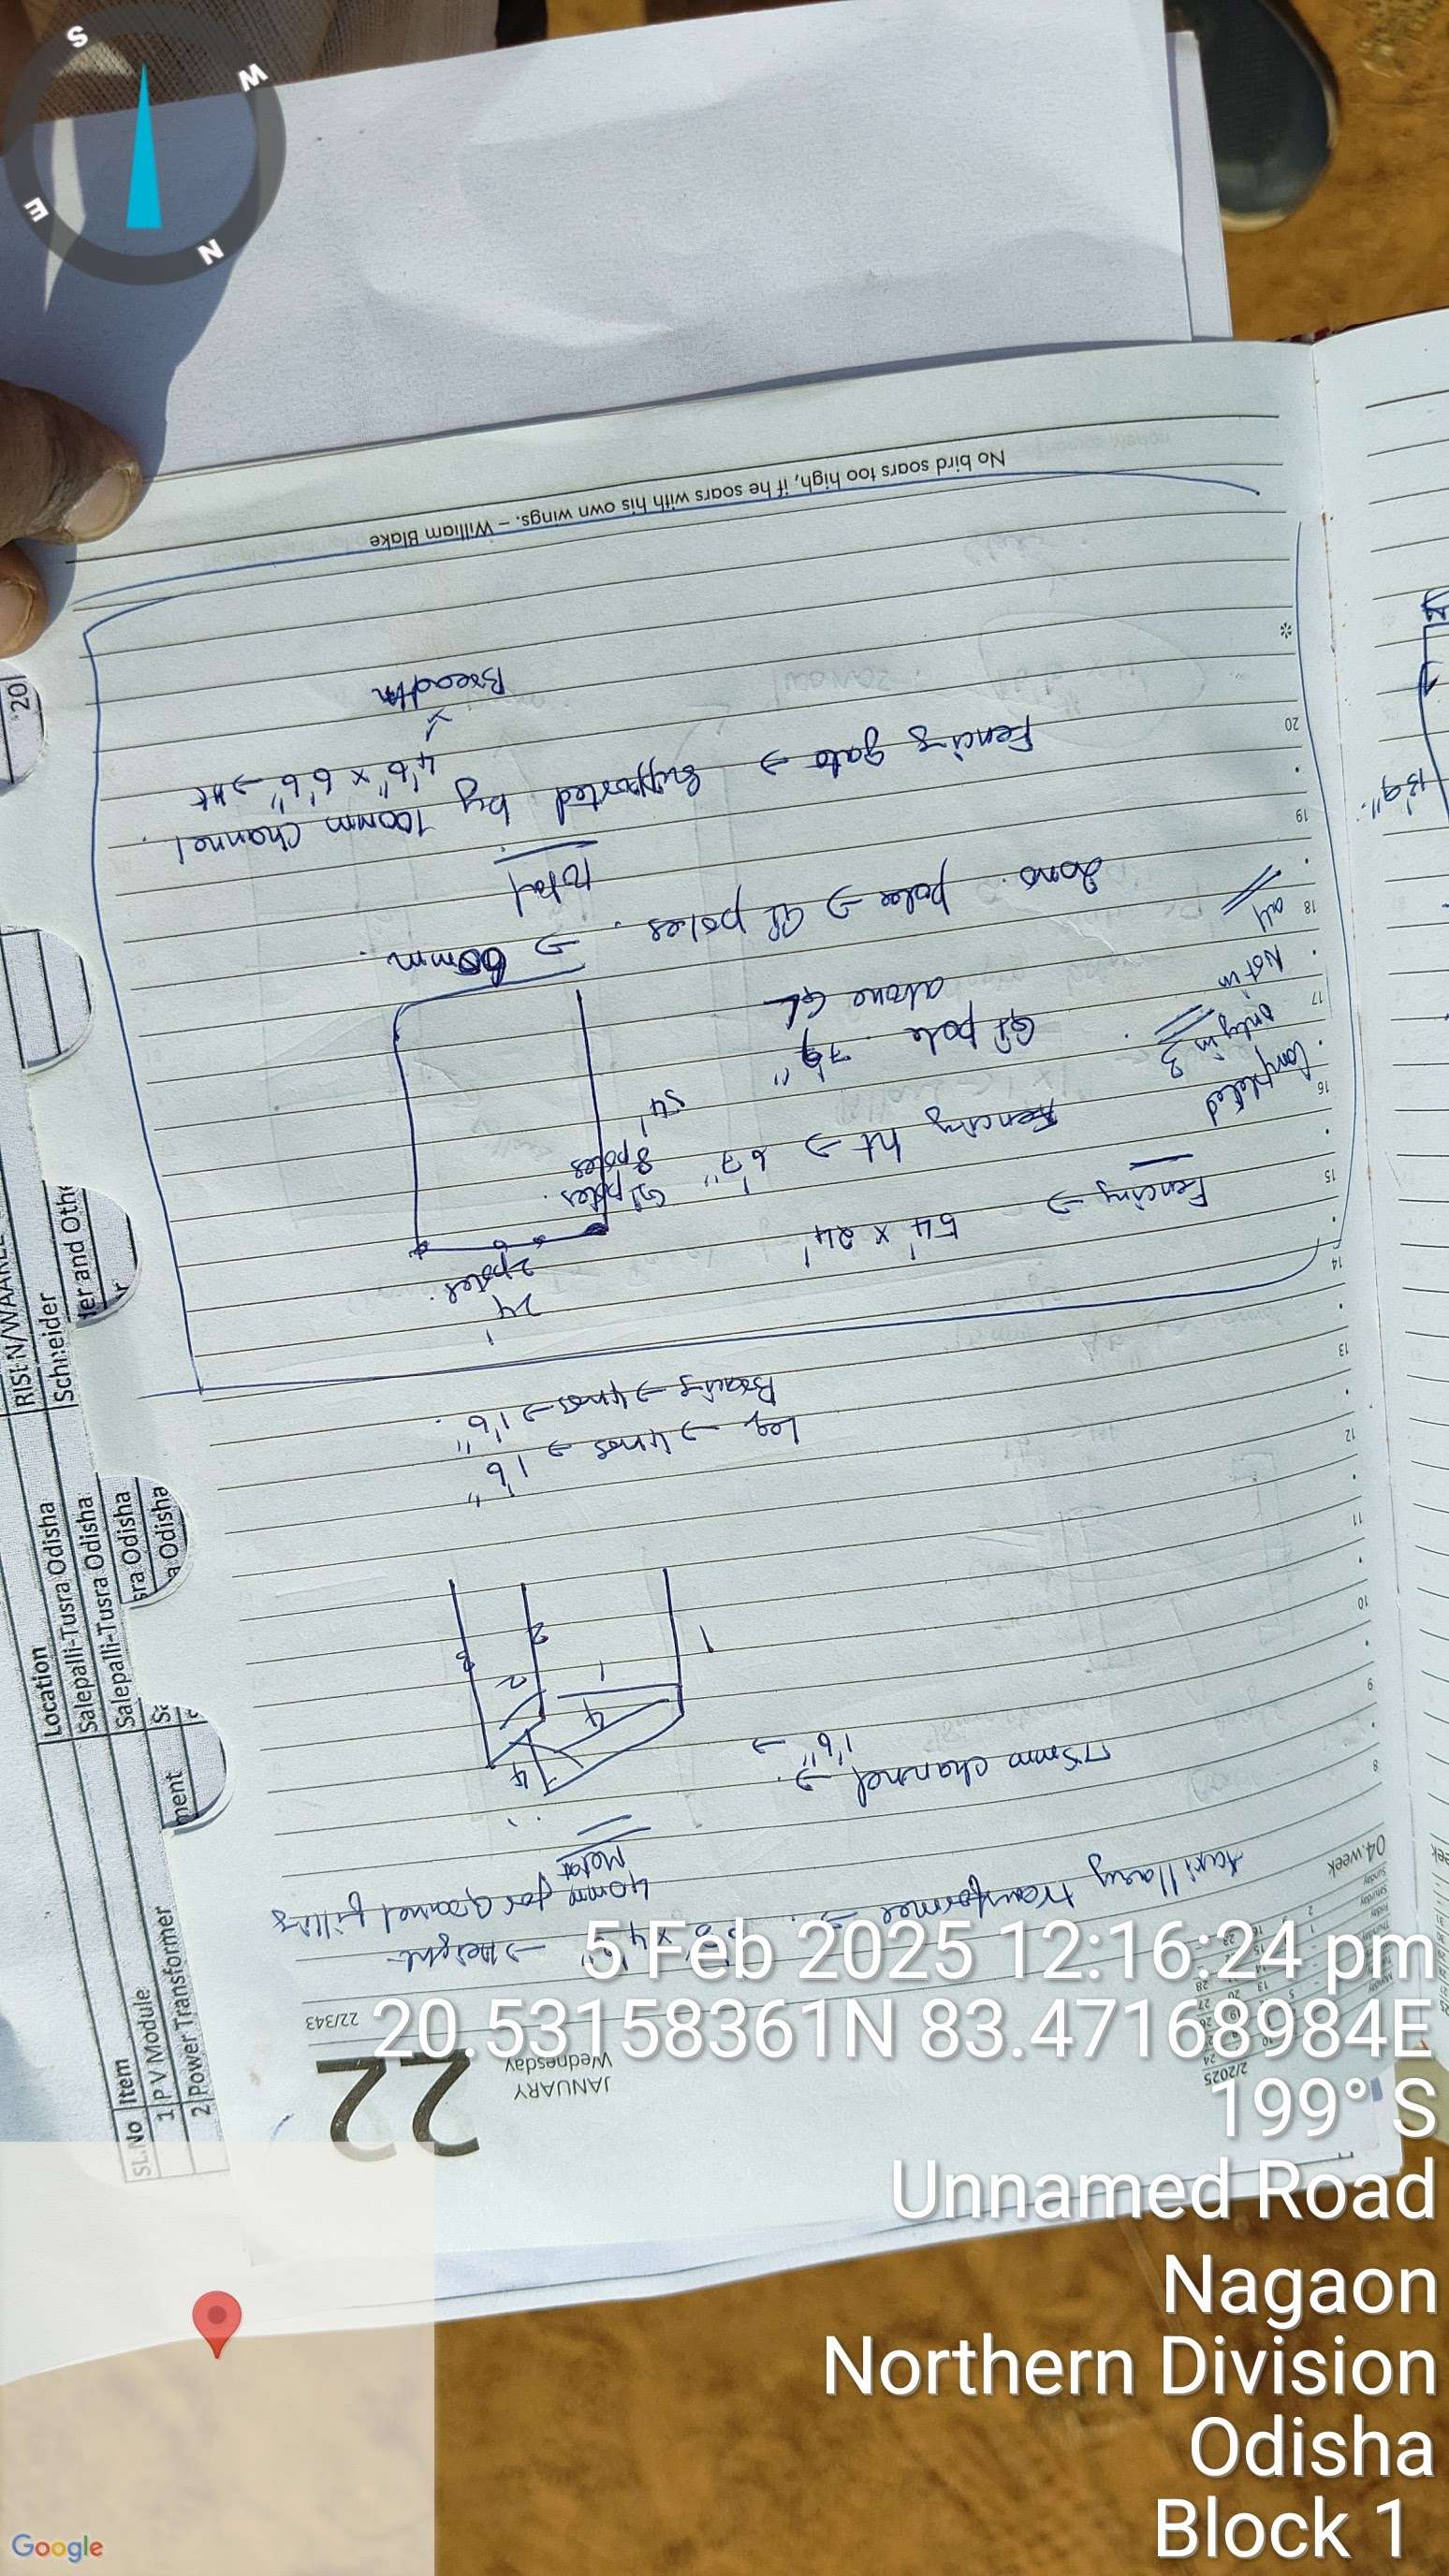 S
W
E
N
22
JANUARY
Wednesday
22/343
2/2025
04.week
Auxillary transformer →
→ Height
40mm for Gravel filling
Metal
75mm channel →
1'6" →
4
4
1
2
1
2
3
Leg → 4nos → 1'6"
Bracing → 4nos → 1'6"
24'
2 poles
Fencing → 54' x 24'
GI poles
8 poles
54'
Completed
only in 3
Not in
all
Fencing ht → 6'7"
GI pole 7'9"
above GL
poles → GI poles. → 60mm.
Total
Fencing gate → Supported by 100mm channel.
4'6" x 6'6" → Ht
Breadth
8
9
10
11
12
13
14
15
16
17
18
19
20
*
No bird soars too high, if he soars with his own wings. – William Blake
SL.No Item Location
1 P V Module Salepalli-Tusra Odisha
2 Power Transformer Salepalli-Tusra Odisha
sra Odisha
a Odisha
ment
Schneider
20
5 Feb 2025 12:16:24 pm
20.53158361N 83.47168984E
199° S
Unnamed Road
Nagaon
Northern Division
Odisha
Block 1
Google